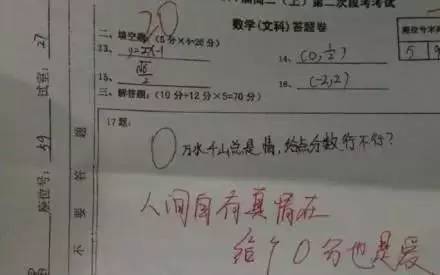 高二(上)第二次段考考试
数学(文科)答题卷
20
二、填空题:(5分×4=20分)
13、y=2x-1
14、(0,1/2)
15、
16、(-2,2)
三、解答题:(10分+12分×5=70分)
17题:
0
万水千山总是情,给点分数行不行?
人间自有真情在
给个0分也是爱
试室:27
座位号:
不要答题